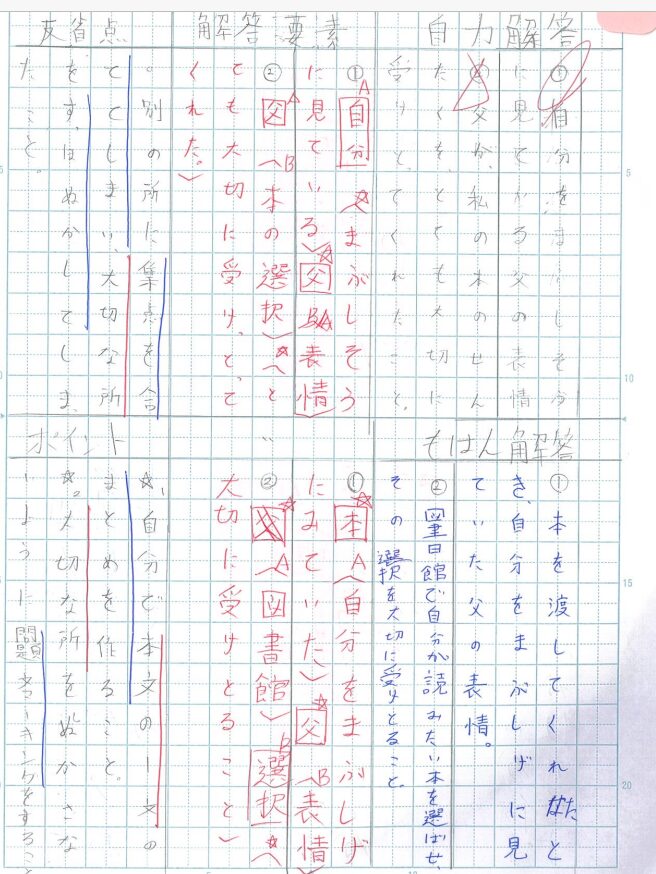 自力解答
①自分をまぶしそう
に見てゐる父の表情
②父が、私の本のせん
たくを、とても大切に
受けとってくれたこと。
解答要素
①自分（まぶしそう
に見ている）父 表情
②父（本の選択）（と
ても大切に受け、とって
くれた。）
反省点
。別の所に集点を合
ててしまい、大切な所
をす、はぬかしてしま、
たこと。
もはん解答
①本を渡してくれたと
き、自分をまぶしげに見
ていた父の表情。
②図書館で自分が読みたい本を選ばせ、
その選択を大切に受けとること。
①本（自分をまぶしげ
にみていた）父（表情）
②父（図書館）選択（
大切に受けとること）
ポイント
☆、自分で本文の一文の
まとめを作ること。
☆。大切な所をぬかさな
いように問題マーキングをすること
5
10
15
20